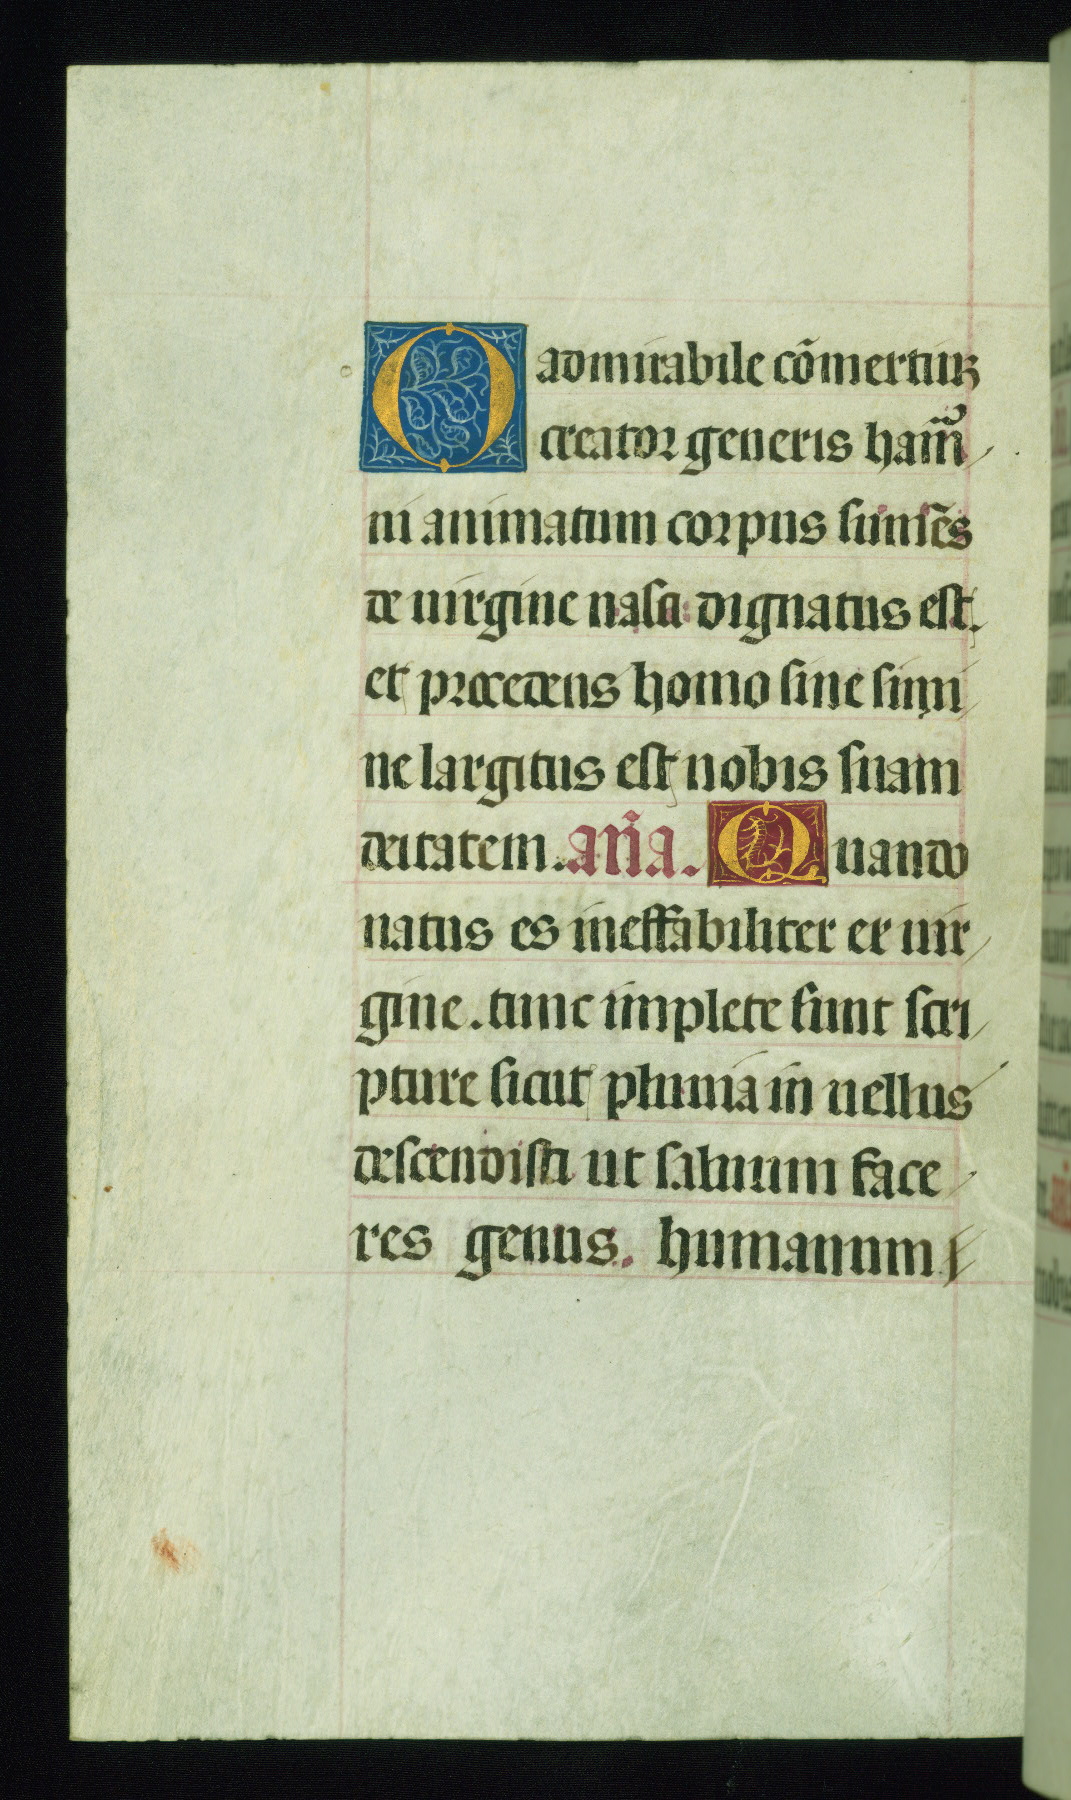 O admirabile cõmertiuꝫ
creator generis hām̃
ni animatum corpus sumẽs
de uirgine nasci dignatus est.
et procedens homo sine simi
ne largitus est nobis suam
deitatem. aña. Quando
natus es ineffabiliter ex uir
gine. tunc implete sunt scri
pture sicut pluuia in uellus
descendisti ut saluum face
res genus. humanum